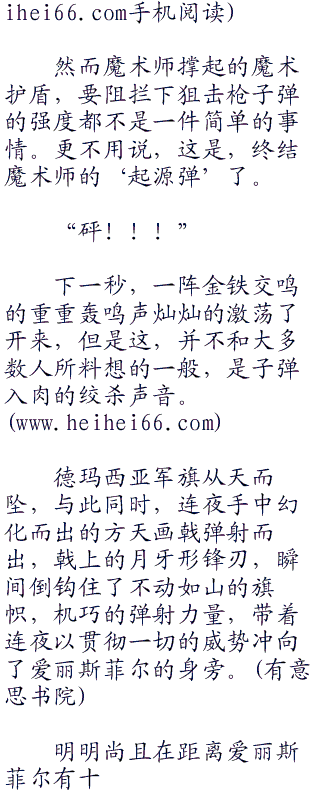 ihei66.com手机阅读)
然而魔术师撑起的魔术
护盾，要阻拦下狙击枪子弹
的强度都不是一件简单的事
情。更不用说，这是，终结
魔术师的‘起源弹’了。
“砰！！！”
下一秒，一阵金铁交鸣
的重重轰鸣声灿灿的激荡了
开来，但是这，并不和大多
数人所料想的一般，是子弹
入肉的绞杀声音。
(www.heihei66.com)
德玛西亚军旗从天而
坠，与此同时，连夜手中幻
化而出的方天画戟弹射而
出，戟上的月牙形锋刃，瞬
间倒钩住了不动如山的旗
帜，机巧的弹射力量，带着
连夜以贯彻一切的威势冲向
了爱丽斯菲尔的身旁。(有意
思书院)
明明尚且在距离爱丽斯
菲尔有十